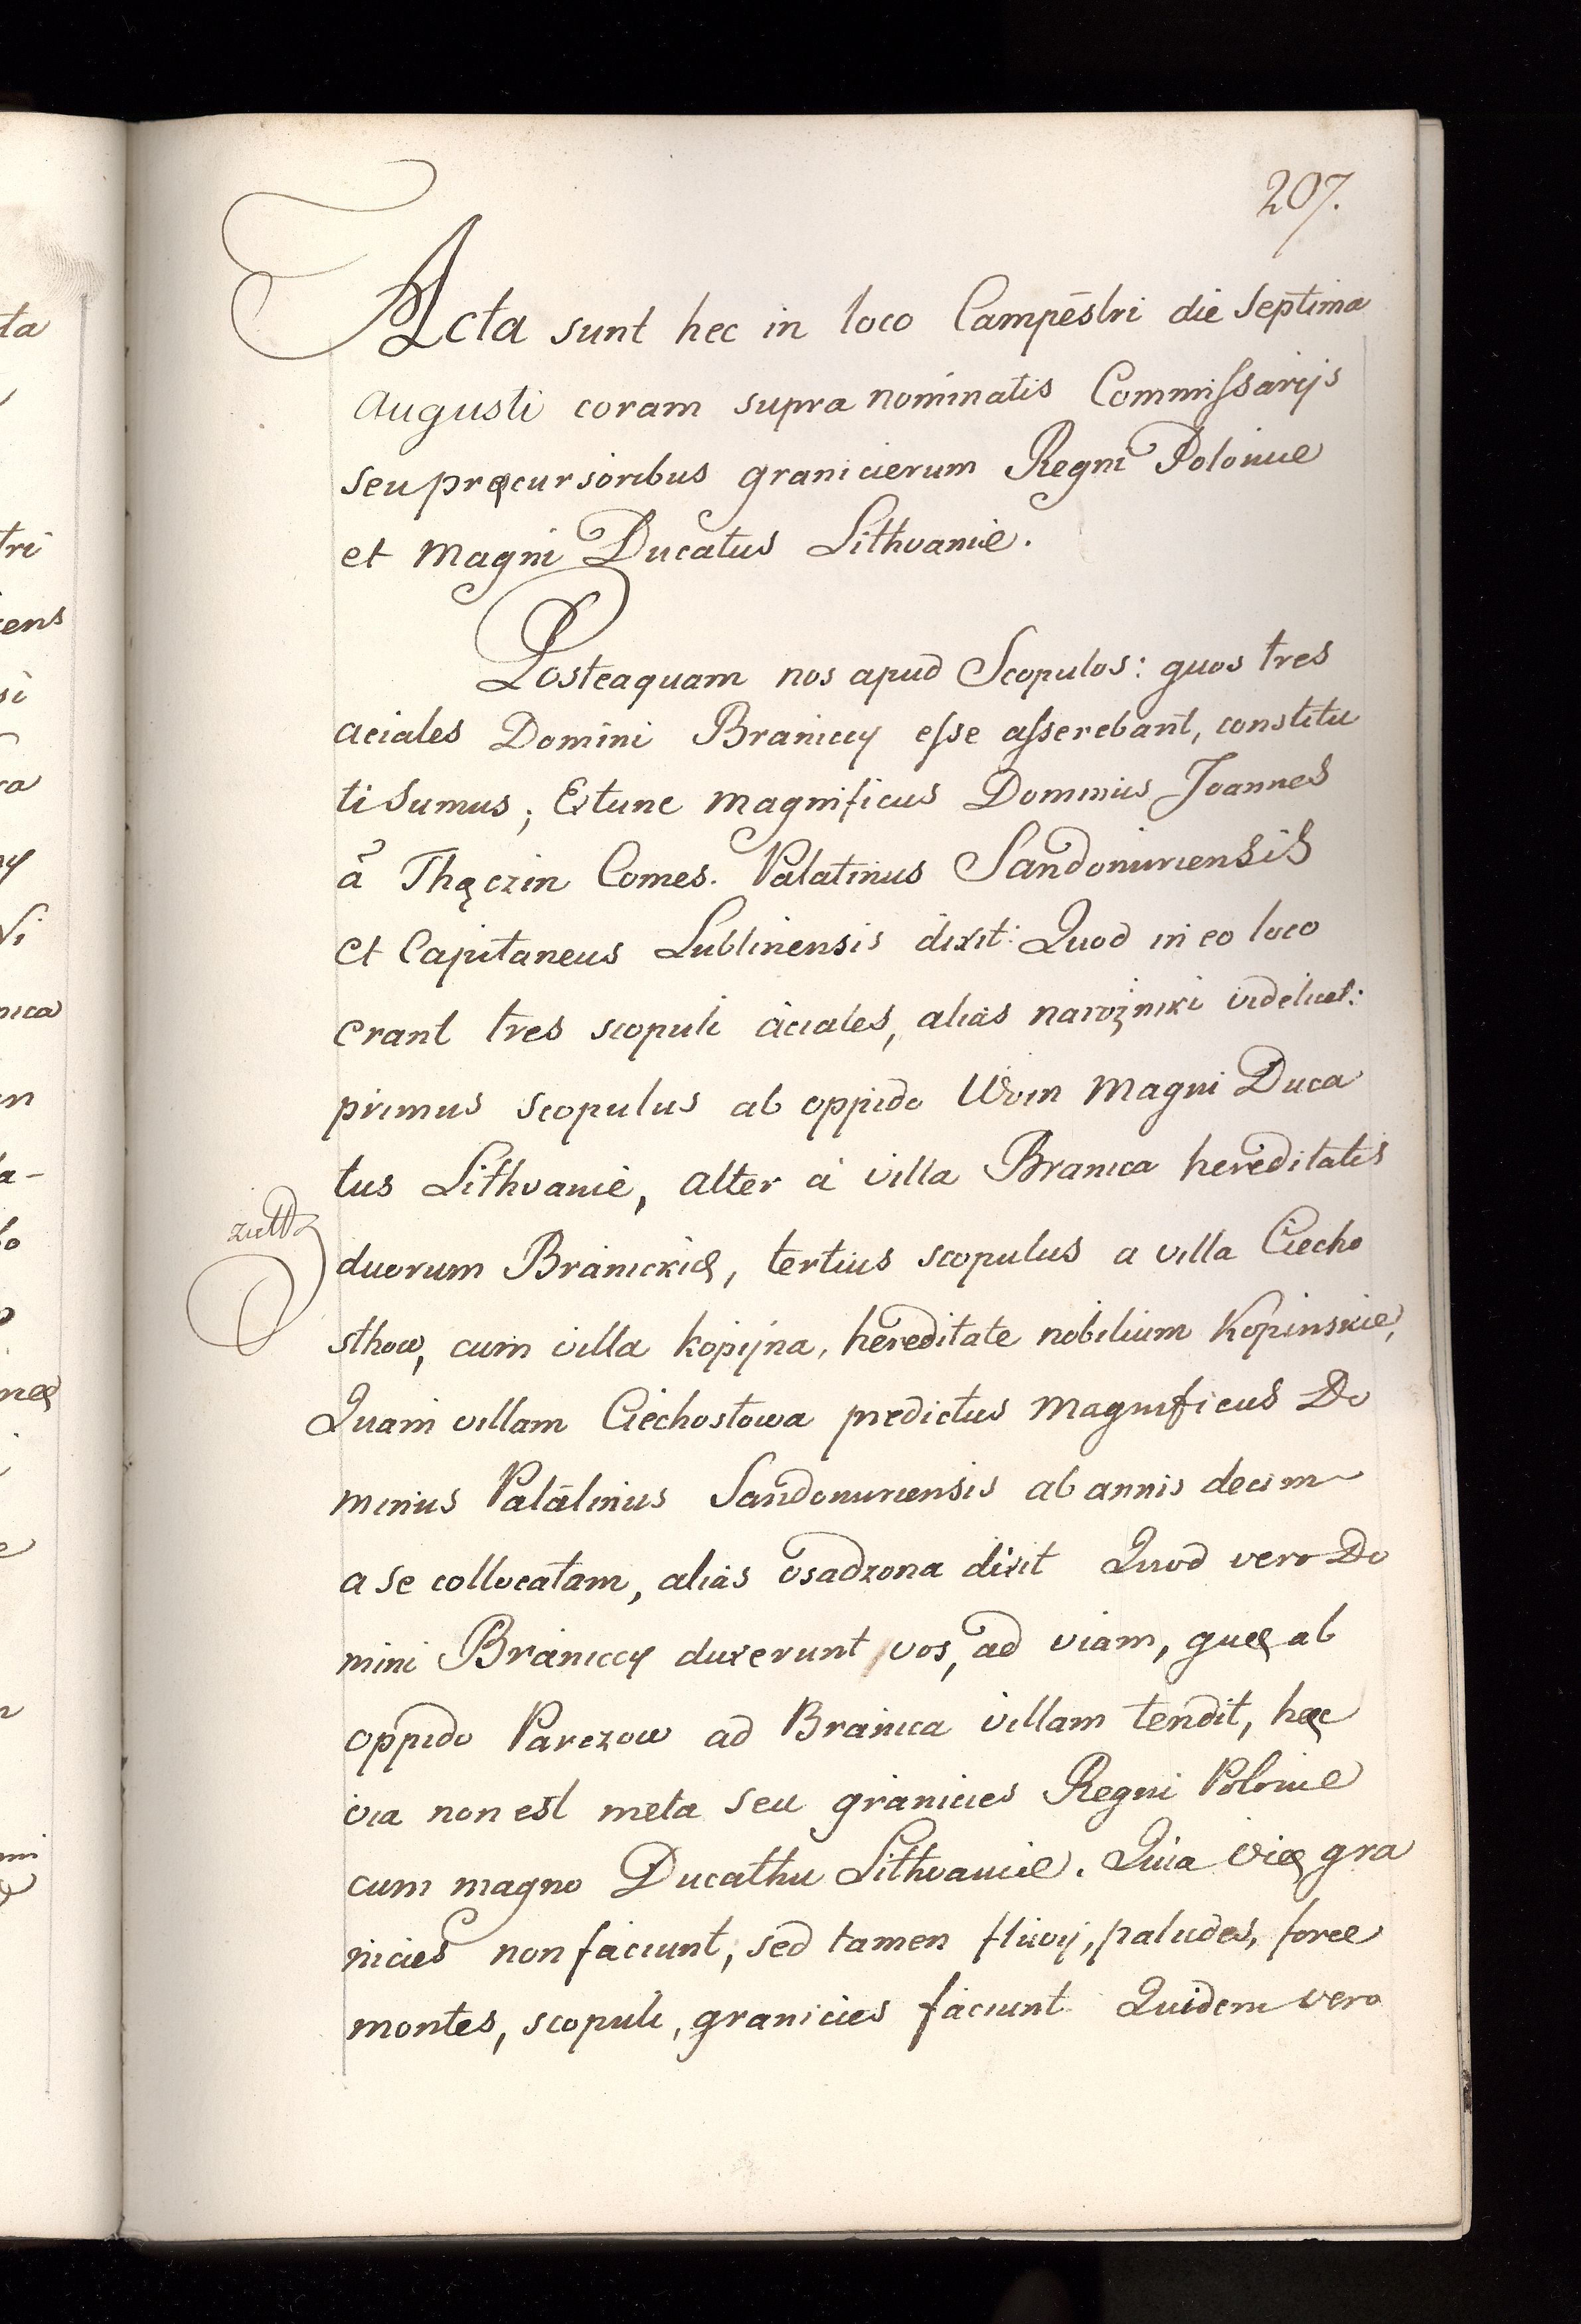 207.
Acta sunt hec in loco Campestri die Septima
Augusti coram supra nominatis Commissarijs
seu pręcursoribus granicierum Regni Polonie
et Magni Ducatus Lithvanie.
Posteaquam nos apud Scopulos: quos tres
aciales Domini Braniccy esse asserebant, constitu
ti sumus; Extunc Magnificus Dominus Joannes
à Thęczin Comes. Palatinus Sandomiriensis
et Capitaneus Lublinensis dixit: Quod in eo loco
erant tres scopuli aciales, alias narożniki videlicet:
primus scopulus ab oppido Woin Magni Duca
tus Lithvanie, alter à villa Branica hereditatis
duorum Branickię, tertius scopulus a villa Ciecho
sthow, cum villa kopijna, hereditate nobilium Kopinskie,
Quam villam Ciechostowa predictus Magnificus Do
minus Palatinus Sandomiriensis ab annis decim
a se collocatam, alias osadzona dixit Quod vero Do
mini Braniccy duxerunt vos, ad viam, quę ab
oppido Parczow ad Branica villam tendit, hęc
via non est meta seu granicies Regni Polonie
cum magno Ducathu Lithvanie. Quia vię gra
nicies non faciunt, sed tamen fluvij, paludes,
montes, scopuli, granicies faciunt Quidem vero
ta
tri
ens
si
ra
ny
nica
en
la-